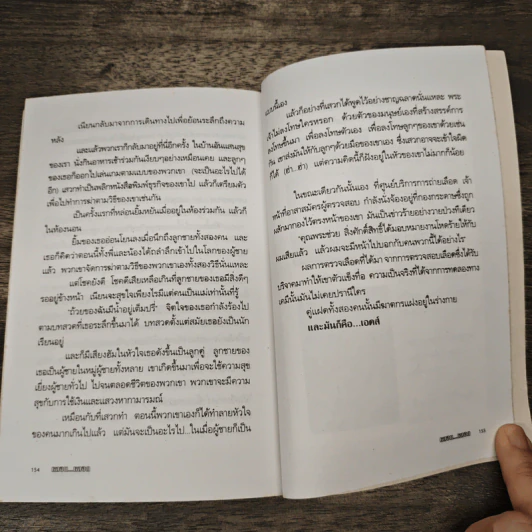 เนียนกลับมาจากการเดินทางไปเพื่อย้อนระลึกถึงความ
หลัง
และแล้วพวกเราก็กลับมาอยู่ที่นี่อีกครั้ง ในบ้านอันแสนสุข
ของเรา นั่งกินอาหารเช้าร่วมกันเงียบๆอย่างเหมือนเคย และลูกๆ
ของเธอก็ออกไปเล่นเกมตามแบบของพวกเขา (จะเป็นอะไรไปได้
อีก) เสวกทำเป็นพลิกหนังสือพิมพ์ธุรกิจของเขาไป แล้วก็เตรียมตัว
เพื่อไปทำการฆ่าตามวิธีของเขาเช่นกัน
เป็นครั้งแรกที่หล่อนยิ้มหยันเมื่ออยู่ในห้องร่วมกัน แล้วก็
ในห้องนอน
ยิ้มของเธออ่อนโยนลงเมื่อนึกถึงลูกชายทั้งสองคน และ
เธอก็คิดว่าตอนนี้ทั้งพี่และน้องได้ถลำลึกเข้าไปในโลกของผู้ชาย
แล้ว พวกเขาจัดการฆ่าตามวิธีของพวกเขาเองทั้งสองวิธีนั่นแหละ
แต่โชคยังดี โชคดีเสียเหลือเกินที่ลูกชายของเธอมีสิ่งดีๆ
รออยู่ข้างหน้า เนียนจะสุขใจเพียงไรมีแต่คนเป็นแม่เท่านั้นที่รู้
"ถ้วยของฉันมีน้ำอยู่เต็มปรี่" จิตใจของเธอกำลังร้องไป
ตามบทสวดที่เธอระลึกขึ้นมาได้ บทสวดตั้งแต่สมัยเธอยังเป็นนัก
เรียนอยู่
และก็มีเสียงฮัมในหัวใจเธอดังขึ้นเป็นลูกคู่ ลูกชายของ
เธอเป็นผู้ชายในหมู่ผู้ชายทั้งหลาย เขาเกิดขึ้นมาเพื่อจะใช้ความสุข
เยี่ยงผู้ชายทั่วไป ไปจนตลอดชีวิตของพวกเขา พวกเขาจะมีความ
สุขกับการใช้เงินและแสวงหากามารมณ์
เหมือนกับที่เสวกทำ ตอนนี้พวกเขาเองก็ได้ทำลายหัวใจ
ของคนมากเกินไปแล้ว แต่มันจะเป็นอะไรไป...ในเมื่อผู้ชายก็เป็น
154
แบบนี้เอง
แล้วก็อย่างที่เสวกได้พูดไว้อย่างชาญฉลาดนั่นแหละ พระ
เจ้าไม่ลงโทษใครหรอก ด้วยตัวของมนุษย์เองที่สร้างสรรค์การ
ลงโทษขึ้นมา เพื่อลงโทษตัวเอง เพื่อลงโทษลูกๆของเขาด้วยเช่น
กัน เขาส่งมันให้กับลูกๆด้วยมือของเขาเอง ซึ่งเสวกอาจจะเข้าใจผิด
ก็ได้ (ฮ่า.. ฮ่า) แต่ความคิดนี้ก็ฝังอยู่ในหัวของเขาไม่มากก็น้อย
ในขณะเดียวกันนั้นเอง ที่ศูนย์บริการการถ่ายเลือด เจ้า
หน้าที่อาสาสมัครผู้ตรวจสอบ กำลังนั่งจ้องอยู่ที่กองกระดาษซึ่งถูก
ผลักมากองไว้ตรงหน้าของเขา มันเป็นข่าวร้ายอย่างวายป่วงทีเดียว
"คุณพระช่วย สิ่งศักดิ์สิทธิ์ได้มอบหมายงานโหดร้ายให้กับ
ผมเสียแล้ว แล้วผมจะมีหน้าไปบอกกับคนพวกนี้ได้อย่างไร"
ผลการตรวจเลือดที่ได้มา จากการตรวจสอบเลือดซึ่งได้รับ
บริจาคมาทำให้เขาตัวแข็งทื่อ ความเป็นจริงที่ได้จากการทดลองทาง
เคมีนั้นมันไม่เคยปรานีใคร
คู่แฝดทั้งสองคนนั้นมีฆาตกรแฝงอยู่ในร่างกาย
และมันก็คือ...เอดส์
155